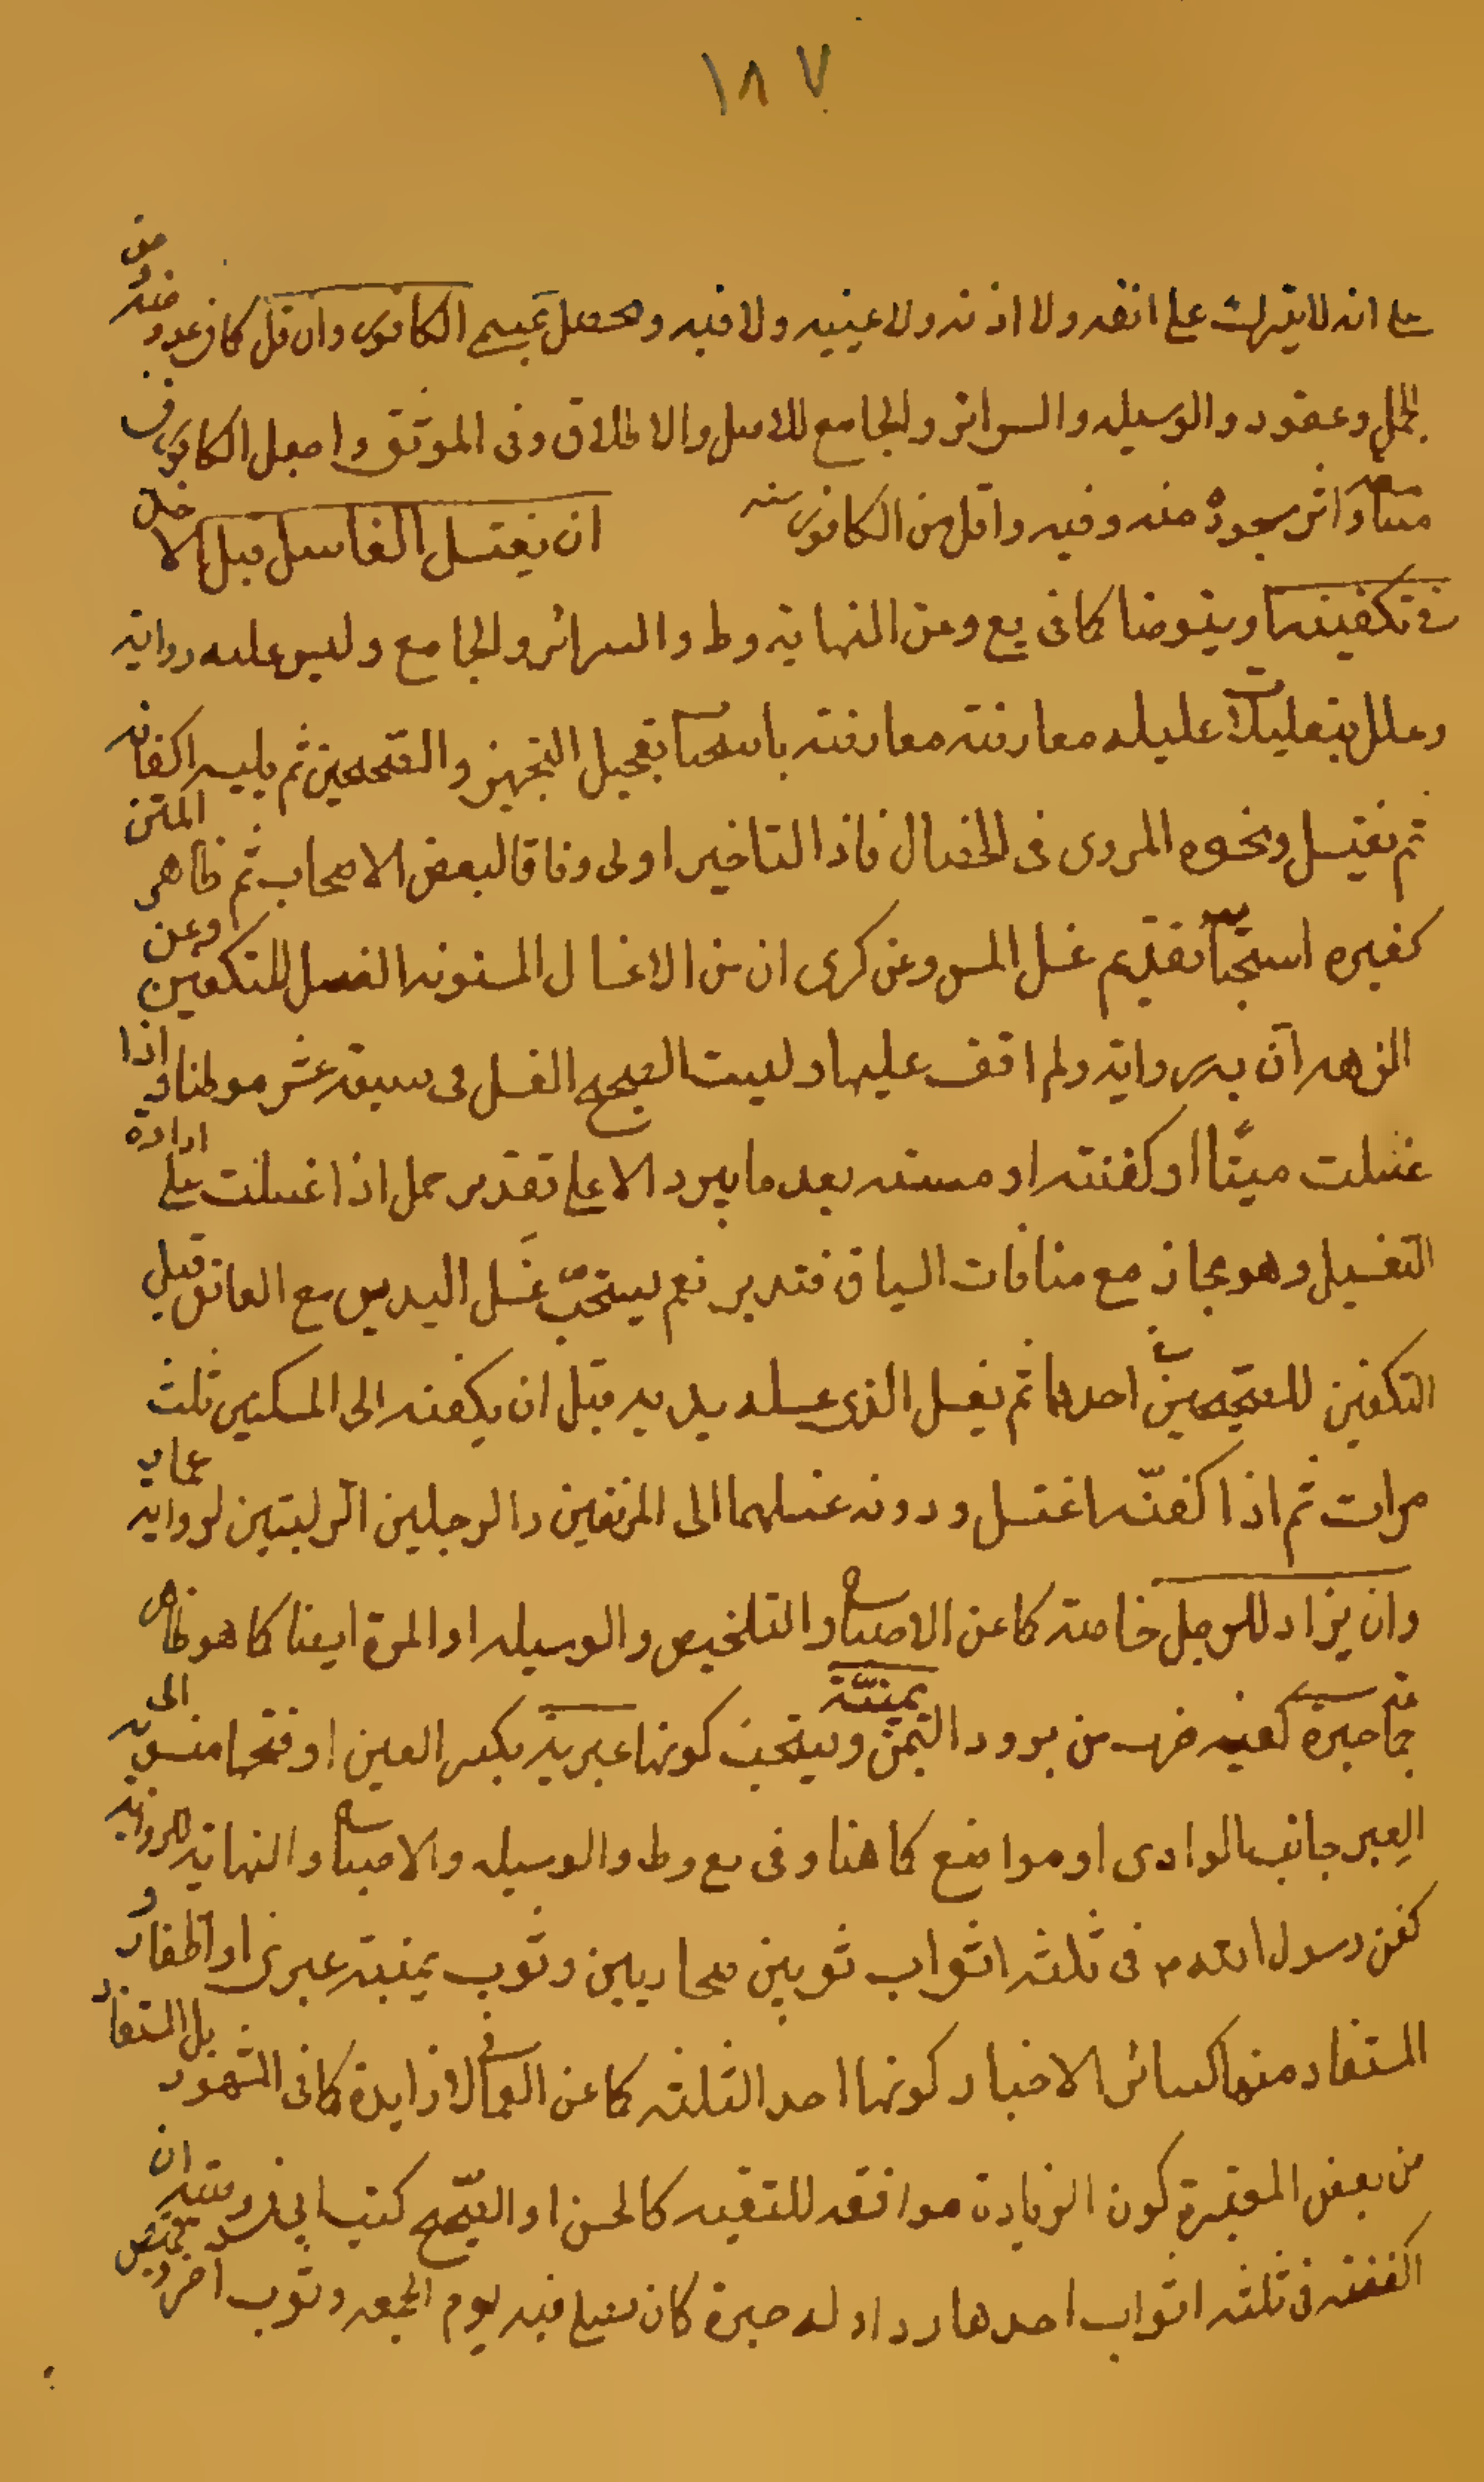 ١٨٧
على انه لا يترك على انفه ولا اذنه ولا عينيه ولا فيه ويحصل بمسمى الكافور وان قل كما في عدد ومنه من
الجمل وعقود والوسيله والسرائر والجامع للاصل والاطلاق وفى الموثق واجعل الكافور فى
مسامعه واثر سجوده منه وفيه واقل من الكافور سنه ان يغتسل الغاسل قبل الاخذ
فى تكفينه او يتوضا كما فى يع وعن النهايه وط والسرائر والجامع وليس عليه روايه
وعلل بتعليلات عليله معارضته معارضته باستحباب تعجيل التجهيز والصحيحين ثم يلبسه اكفانه
ثم يغتسل ونحوه المروى فى الخصال فاذا التاخير اولى وفاقا لبعض الاصحاب ثم ظاهر المتن
كغيره استحباب تقديم غسل المس وعن كرى ان من الاغسال المسنونه الغسل للتكفين وعن
النزهه ان به روايه ولم اقف عليها وليست الصحيح الغسل فى سبعه عشر موطنا واذا
غسلت ميتا او كفنته او مسسته بعد ما يبرد الا على تقدير حمل اذا غسلت على ارادة
التغسيل وهو مجاز مع منافات السياق فتدبر نعم يستحب غسل اليدين مع العاتق قبل
التكفين للصحيحين فى احدهما ثم يغسل الذى غسله يديه قبل ان يكفنه الى المنكبين ثلث
مرات ثم اذا كفنه اغتسل ودونه غسلهما الى المرفقين والرجلين الركبتين لروايه عمار
وان يزاد للرجل خاصه كما عن الاصباح والتلخيص والوسيله او المرة ايضا كما هو ظاهر
جماعة حبرة كعنبه ضرب من برود اليمن يمنيّة ويستحب كونها عبرية بكسر العين او فتحها منسوبه الى
العِبر جانب الوادى او مواضع كما هنا وفى يع وط والوسيله والاصباح والنهايه للروايه
كفن رسول الله ص فى ثلثه اثواب ثوبين صحاريين وثوب يمنيه عبرى او اظفار و
المستفاد منها كسائر الاخبار كونها احد الثلثه كما عن العمانى لا زايدة كما فى المشهور بل المستفاد
من بعض المعتبرة كون الزيادة موافقه للتقيه كالحسن او الصحيح كتب ابى فى وصيته ان
اكفنه فى ثلثه اثواب احدها رداء له حبرة كان يصلى فيه يوم الجمعه وثوب اخر وقميص